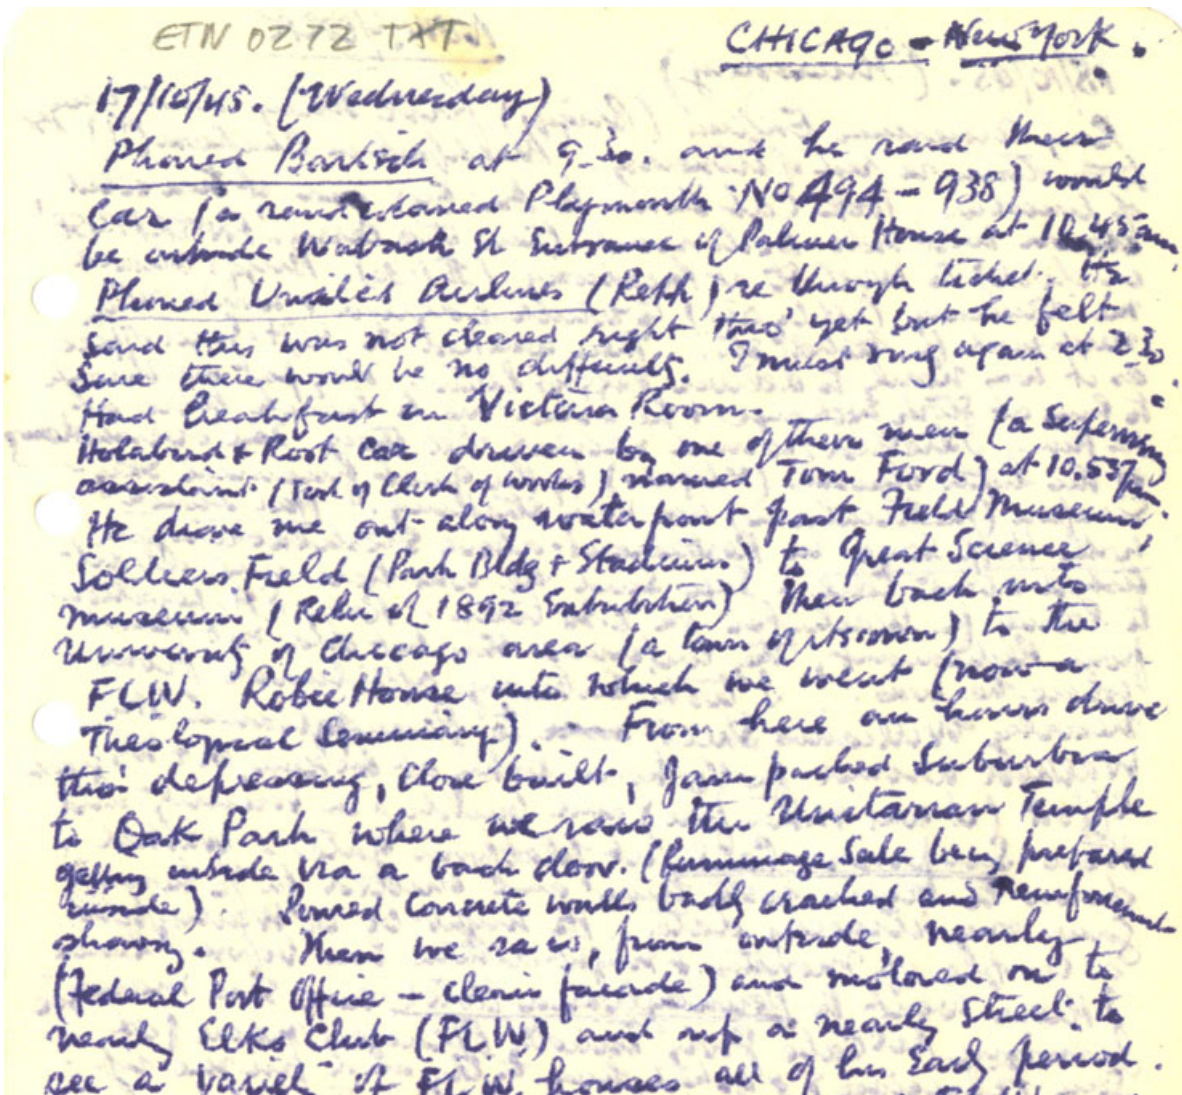 ETN 0272 TXT.
CHICAGO - New York.
17/10/45. (Wednesday)
Phoned Bartsch at 9.30. and he said their
car (a coloured Plymouth No 494-938) would
be outside Wabash St Entrance of Palmer House at 10.45am.
Phoned United Airlines (Repp) re through ticket. He
said this was not cleared right thro' yet but he felt
sure there would be no difficulty. I must ring again at 2.30.
Had breakfast in Victoria Room.
Holabird & Root car driven by one of their men (a Supervising
assistant (sort of Clerk of works) named Tom Ford) at 10.53
He drove me out along waterfront past Field Museum,
Soldiers Field (Park Bldg + Stadium) to Great Science
museum (Relic of 1892 Exhibition) then back into
University of Chicago area (a town of its own) to the
FLW. Robie House into which we went (now a
Theological Seminary). From here an hours drive
thro' depressing, close built, jam packed Suburbia
to Oak Park where we saw the Unitarian Temple
getting inside via a back door. (Rummage Sale being prepared
inside). Poured Concrete walls badly cracked and reinforcement
showing. Then we saw, from outside, nearby
(Federal Post Office - clean facade) and motored on to
nearby Elks Club (FLW.) and up a nearby Street to
see a variety of FLW. houses all of his Early period.